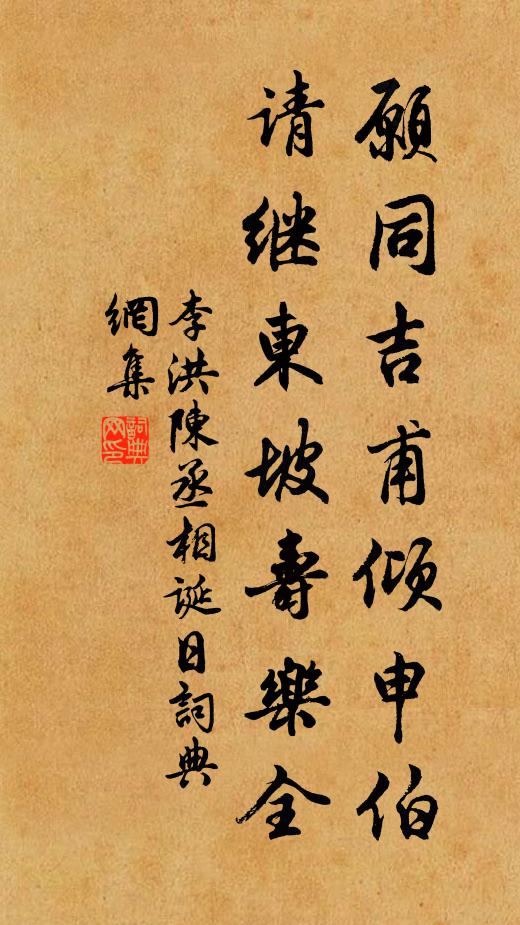 願同吉甫傾申伯
请继東坡壽樂全
李洪陳丞相誕日詞典
網集
詞典
网印